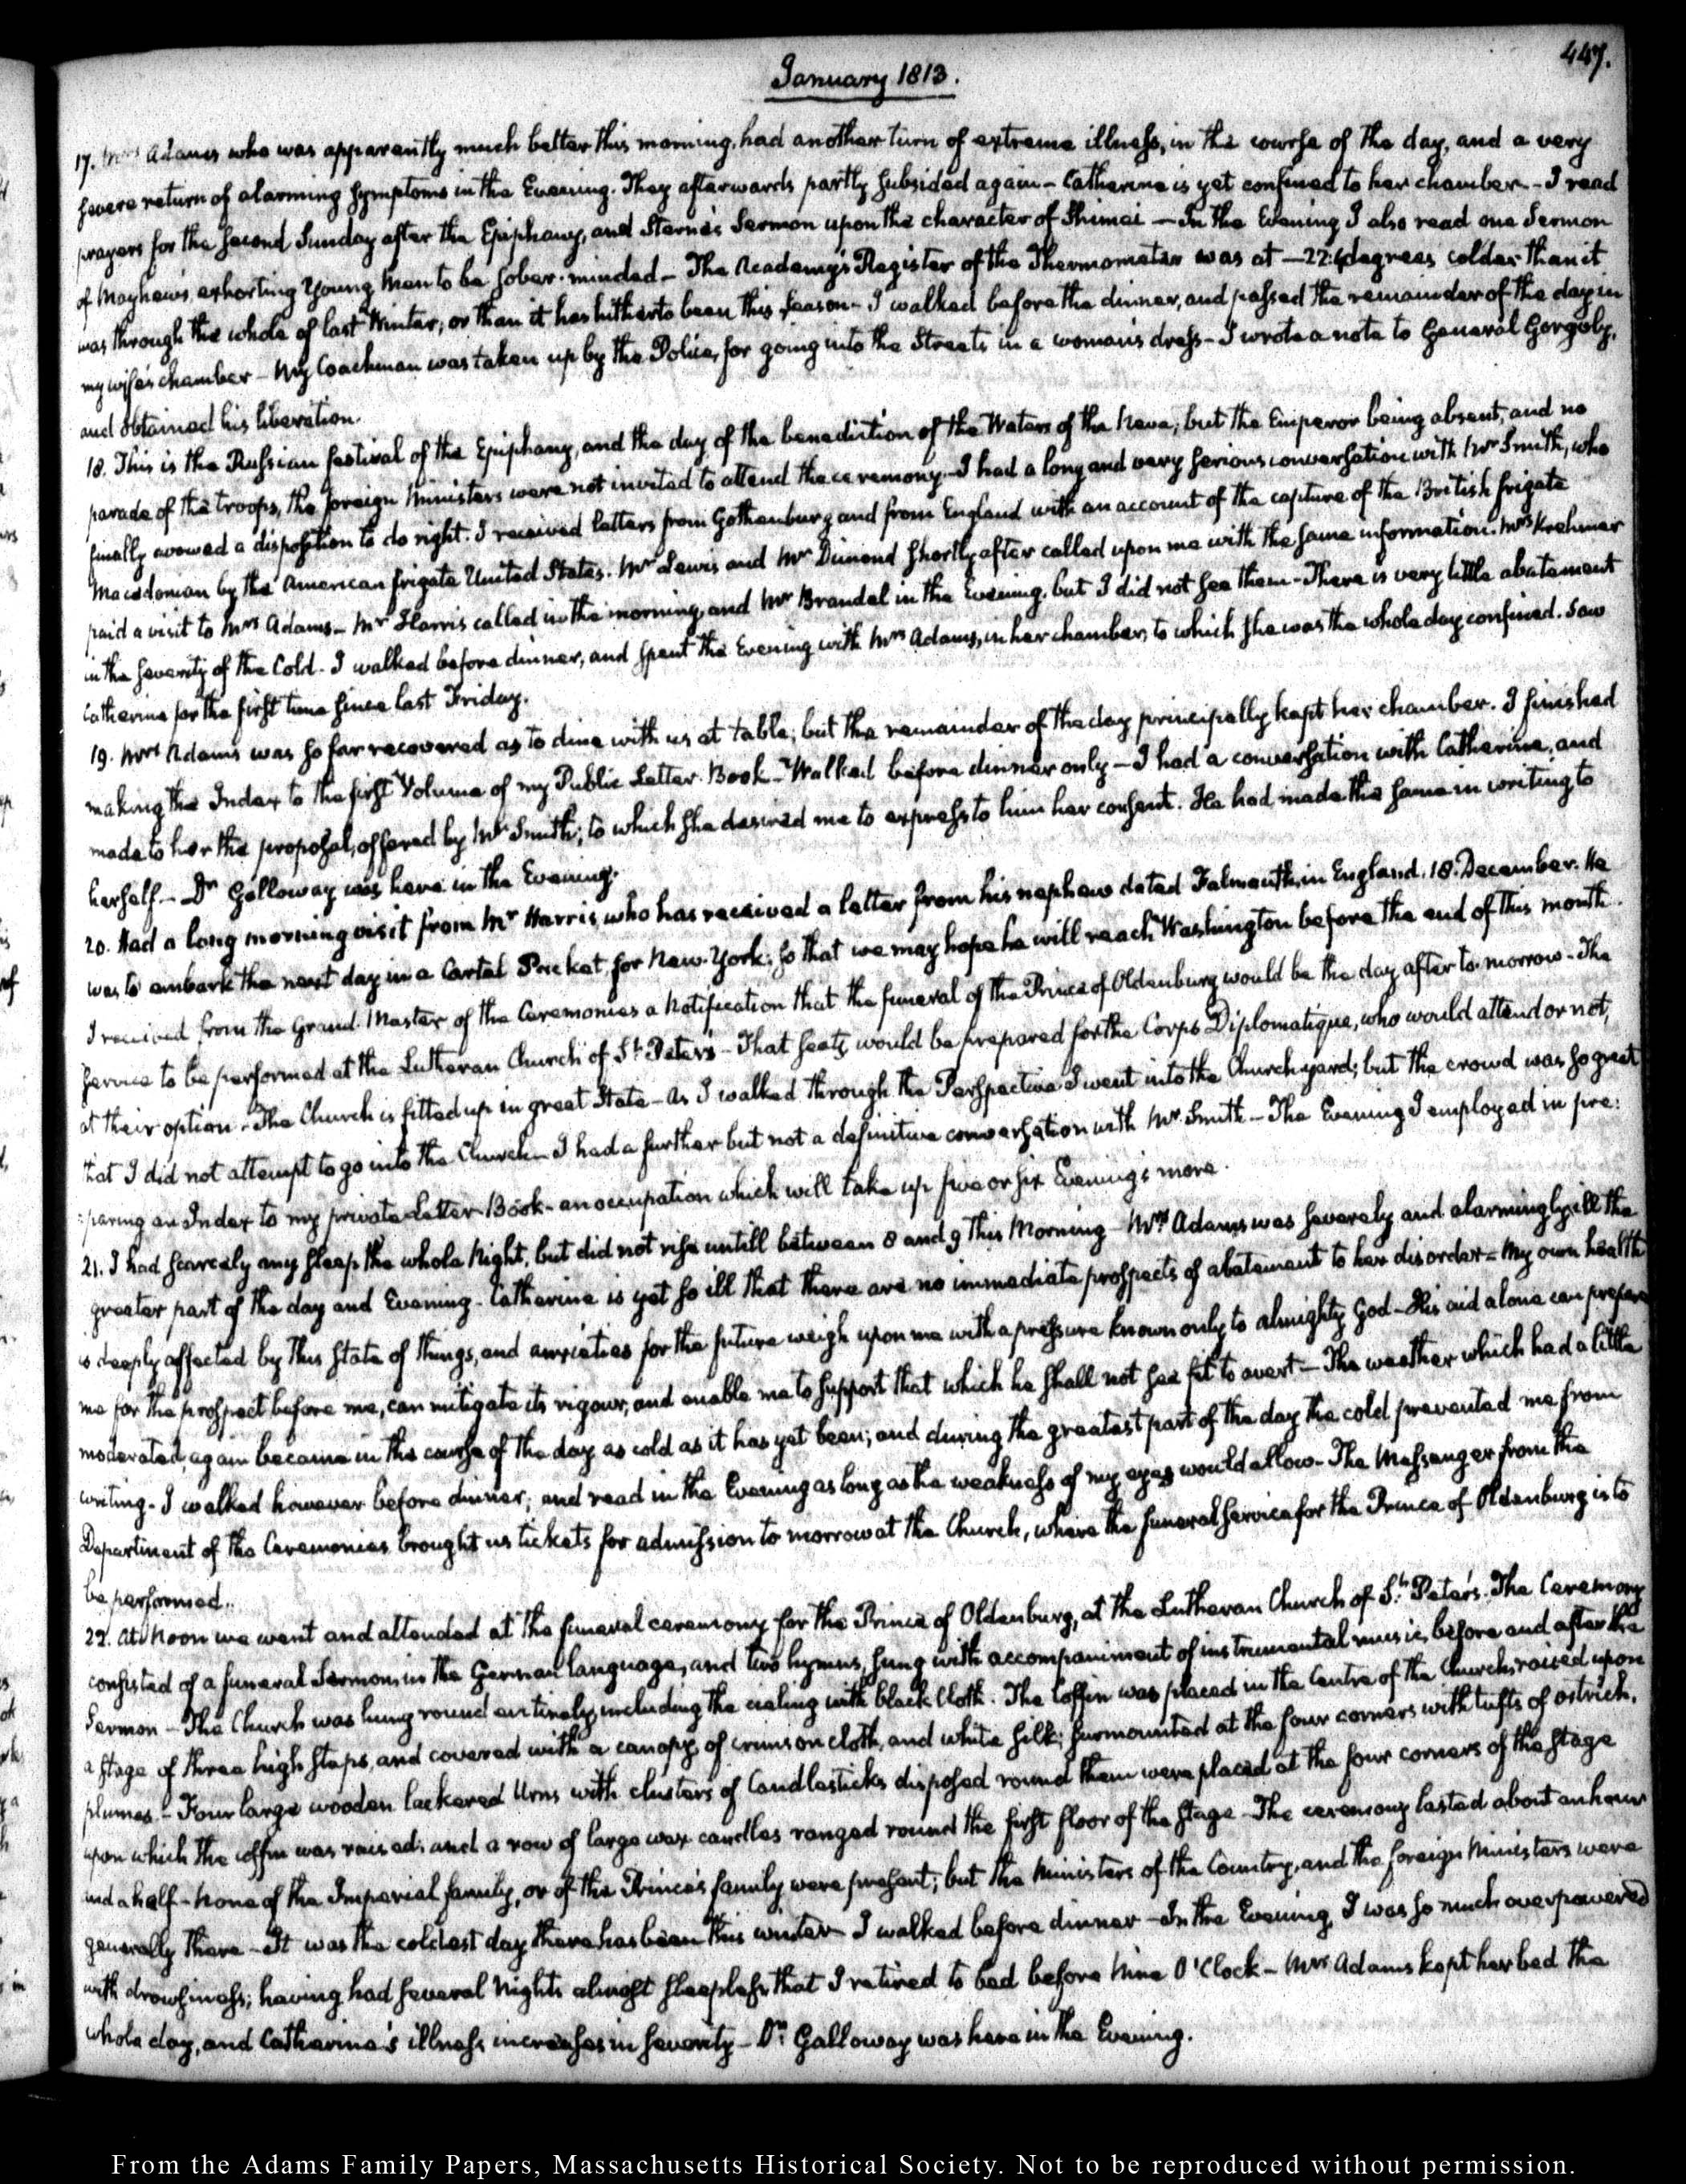 447.
January 1813.
17. Mrs Adams who was apparently much better this morning, had another turn of extreme illness, in the course of the day, and a very
severe return of alarming symptoms in the Evening. They afterwards partly subsided again — Catherine is yet confined to her chamber — I read
prayers for the second Sunday after the Epiphany, and Sterne's Sermon upon the character of Shimei — In the Evening I also read one Sermon
of Mayhew's, exhorting Young Men to be sober-minded — The Academy's Register of the Thermometer was at —22:6 degrees, colder than it
was through the whole of last Winter, or than it has hitherto been this season — I walked before the dinner, and passed the remainder of the day in
my wife's chamber — My Coachman was taken up by the Police, for going into the Streets in a woman's dress — I wrote a note to General Gorgoly,
and obtained his liberation.
18. This is the Russian festival of the Epiphany, and the day of the benediction of the Waters of the Neva; but the Emperor being absent, and no
parade of the troops, the foreign Ministers were not invited to attend the ceremony — I had a long and very serious conversation with Mr Smith, who
finally avowed a disposition to do right. I received letters from Gothenburg and from England with an account of the capture of the British frigate
Macedonian by the American frigate United States. Mr Lewis and Mr Dimond shortly after called upon me with the same information. Mrs Krehmer
paid a visit to Mrs Adams — Mr Harris called in the morning, and Mr Brandel in the Evening, but I did not see them — There is very little abatement
in the severity of the Cold. I walked before dinner, and spent the Evening with Mrs Adams, in her chamber, to which she was the whole day confined. Saw
Catherine for the first time since last Friday.
19. Mrs Adams was so far recovered as to dine with us at table; but the remainder of the day principally kept her chamber. I finished
making the Index to the first Volume of my Public Letter-Book — Walked before dinner only — I had a conversation with Catherine, and
made to her the proposal, offered by Mr Smith; to which she desired me to express to him her consent. He had made the same in writing to
herself — Dr Galloway was here in the Evening.
20. Had a long morning visit from Mr Harris, who has received a letter from his nephew dated Falmouth, in England, 18. December. He
was to embark the next day in a Cartel Packet, for New-York; so that we may hope he will reach Washington before the end of this month.
I received from the Grand-Master of the Ceremonies a Notification that the funeral of the Prince of Oldenburg would be the day after to-morrow — The
service to be performed at the Lutheran Church of St. Peter's — That seats would be prepared for the Corps Diplomatique, who would attend or not,
at their option — The Church is fitted up in great State — As I walked through the Perspective I went into the Churchyard; but the crowd was so great
that I did not attempt to go into the Church — I had a further but not a definitive conversation with Mr Smith — The Evening I employed in pre:
:paring an Index to my private Letter-Book — an occupation which will take up five or six Evening's more.
21. I had scarcely any sleep the whole Night, but did not rise untill between 8 and 9 this Morning — Mrs Adams was severely and alarmingly ill the
greater part of the day and Evening — Catherine is yet so ill that there are no immediate prospects of abatement to her disorder — My own health
is deeply affected by this state of things, and anxieties for the future weigh upon me with a pressure known only to almighty God — His aid alone can prepare
me for the prospect before me, can mitigate its rigour, and enable me to support that which he shall not see fit to avert — The weather which had a little
moderated, again became in the course of the day as cold as it has yet been; and during the greatest part of the day the cold prevented me from
writing — I walked however before dinner; and read in the Evening as long as the weakness of my eyes would allow — The Messenger from the
Department of the Ceremonies brought us tickets for admission to morrow at the Church, where the funeral service for the Prince of Oldenburg is to
be performed.
22. At Noon we went and attended at the funeral ceremony for the Prince of Oldenburg, at the Lutheran Church of St. Peter's. The Ceremony
consisted of a funeral Sermon in the German language, and two hymns, sung with accompaniment of instrumental music, before and after the
Sermon — The Church was hung round entirely, including the cieling with black Cloth. The Coffin was placed in the Centre of the Church, raised upon
a stage of three high steps, and covered with a canopy of crimson cloth, and white silk; surmounted at the four corners with tufts of ostrich,
plumes — Four large wooden lackered Urns with clusters of Candlesticks disposed round them were placed at the four corners of the stage
upon which the coffin was raised; and a row of large wax candles ranged round the first floor of the stage — The ceremony lasted about an hour
and a half — None of the Imperial family, or of the Prince's family were present; but the Ministers of the Country, and the foreign Ministers were
generally there — It was the coldest day there has been this winter — I walked before dinner — In the Evening, I was so much overpowered
with drowsiness; having had several Nights almost sleepless, that I retired to bed before Nine O'Clock — Mrs Adams kept her bed the
whole day, and Catherine's illness increases in severity — Dr. Galloway was here in the Evening.
From the Adams Family Papers, Massachusetts Historical Society. Not to be reproduced without permission.